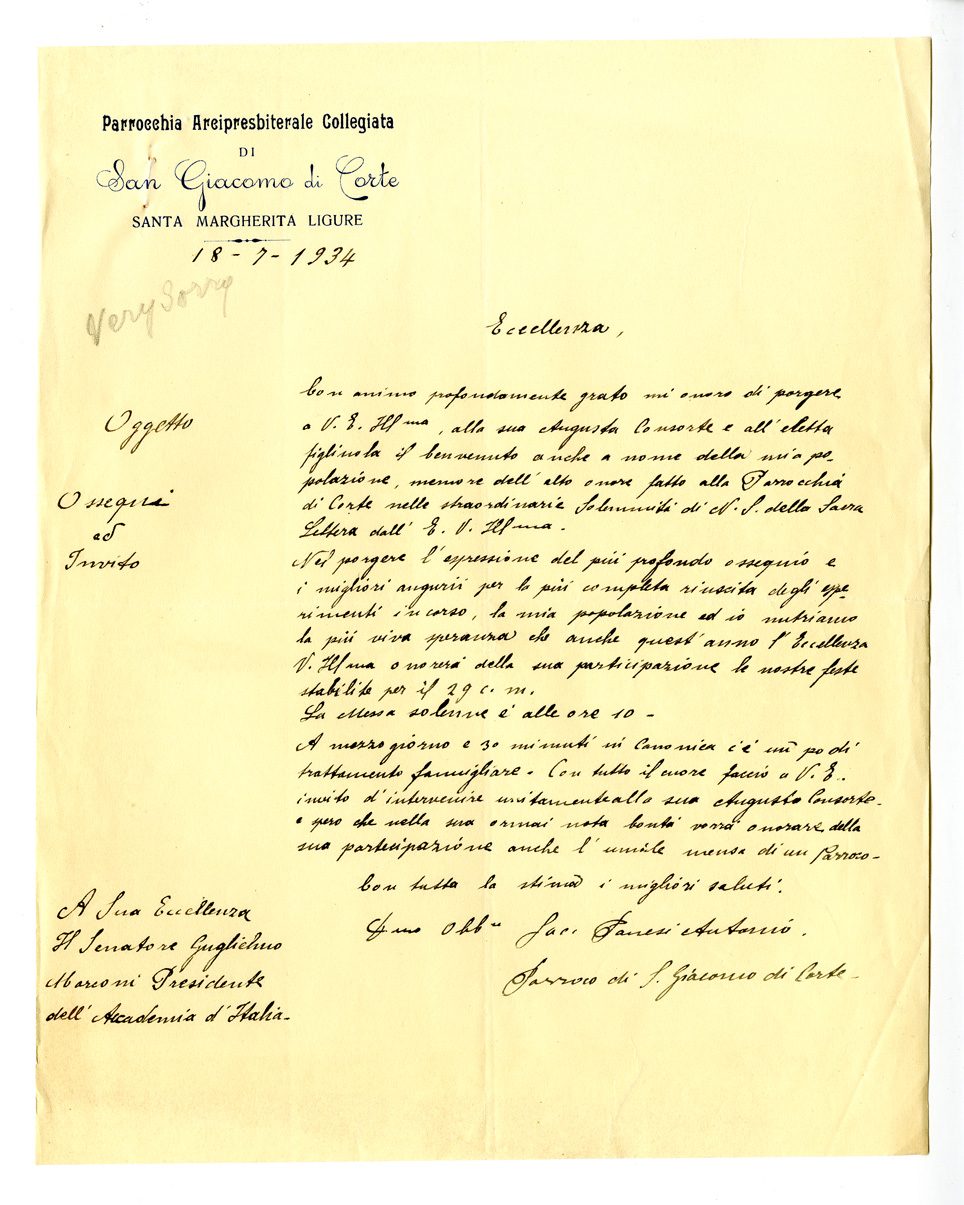 Parrocchia Arcipresbiterale Collegiata
DI
San Giacomo di Corte
SANTA MARGHERITA LIGURE
18-7-1934
Very Sorry
Eccellenza,
Oggetto
Ossequi
ed
Invito
Con animo profondamente grato mi onoro di porgere
a V. E. Ill ma, alla sua Augusta Consorte e all' eletta
figliuola il benvenuto anche a nome della mia po-
polazione, memore dell' alto onore fatto alla Parrocchia
di Corte nelle straordinarie Solennità di N. S. della Sacra
Lettera dall' E. V. Ill ma.
Nel porgere l'espressione del più profondo ossequio e
i migliori augurii per la più completa riuscita degli espe-
rimenti in corso, la mia popolazione ed io nutriamo
la più viva speranza che anche quest' anno l' Eccellenza
V. Ill ma onorerà della sua participazione le nostre feste
stabilite per il 29 c. m.
La Messa solenne é alle ore 10 -
A mezzogiorno e 30 minuti in Canonica c'é un po di
trattamento famigliare. Con tutto il cuore faccio a V. E.
invito d'intervenire unitamente alla sua Augusta Consorte-
e spero che nella sua ormai nota bontà vorrà onorare della
sua partecipazione anche l' umile mensa di un Parroco-
Con tutta la stima i migliori saluti.
D mo Obb Sac. Panesi Antonio.
Parroco di S. Giacomo di Corte-
A Sua Eccellenza
Il Senatore Guglielmo
Marconi Presidente
dell' Accademia d' Italia-